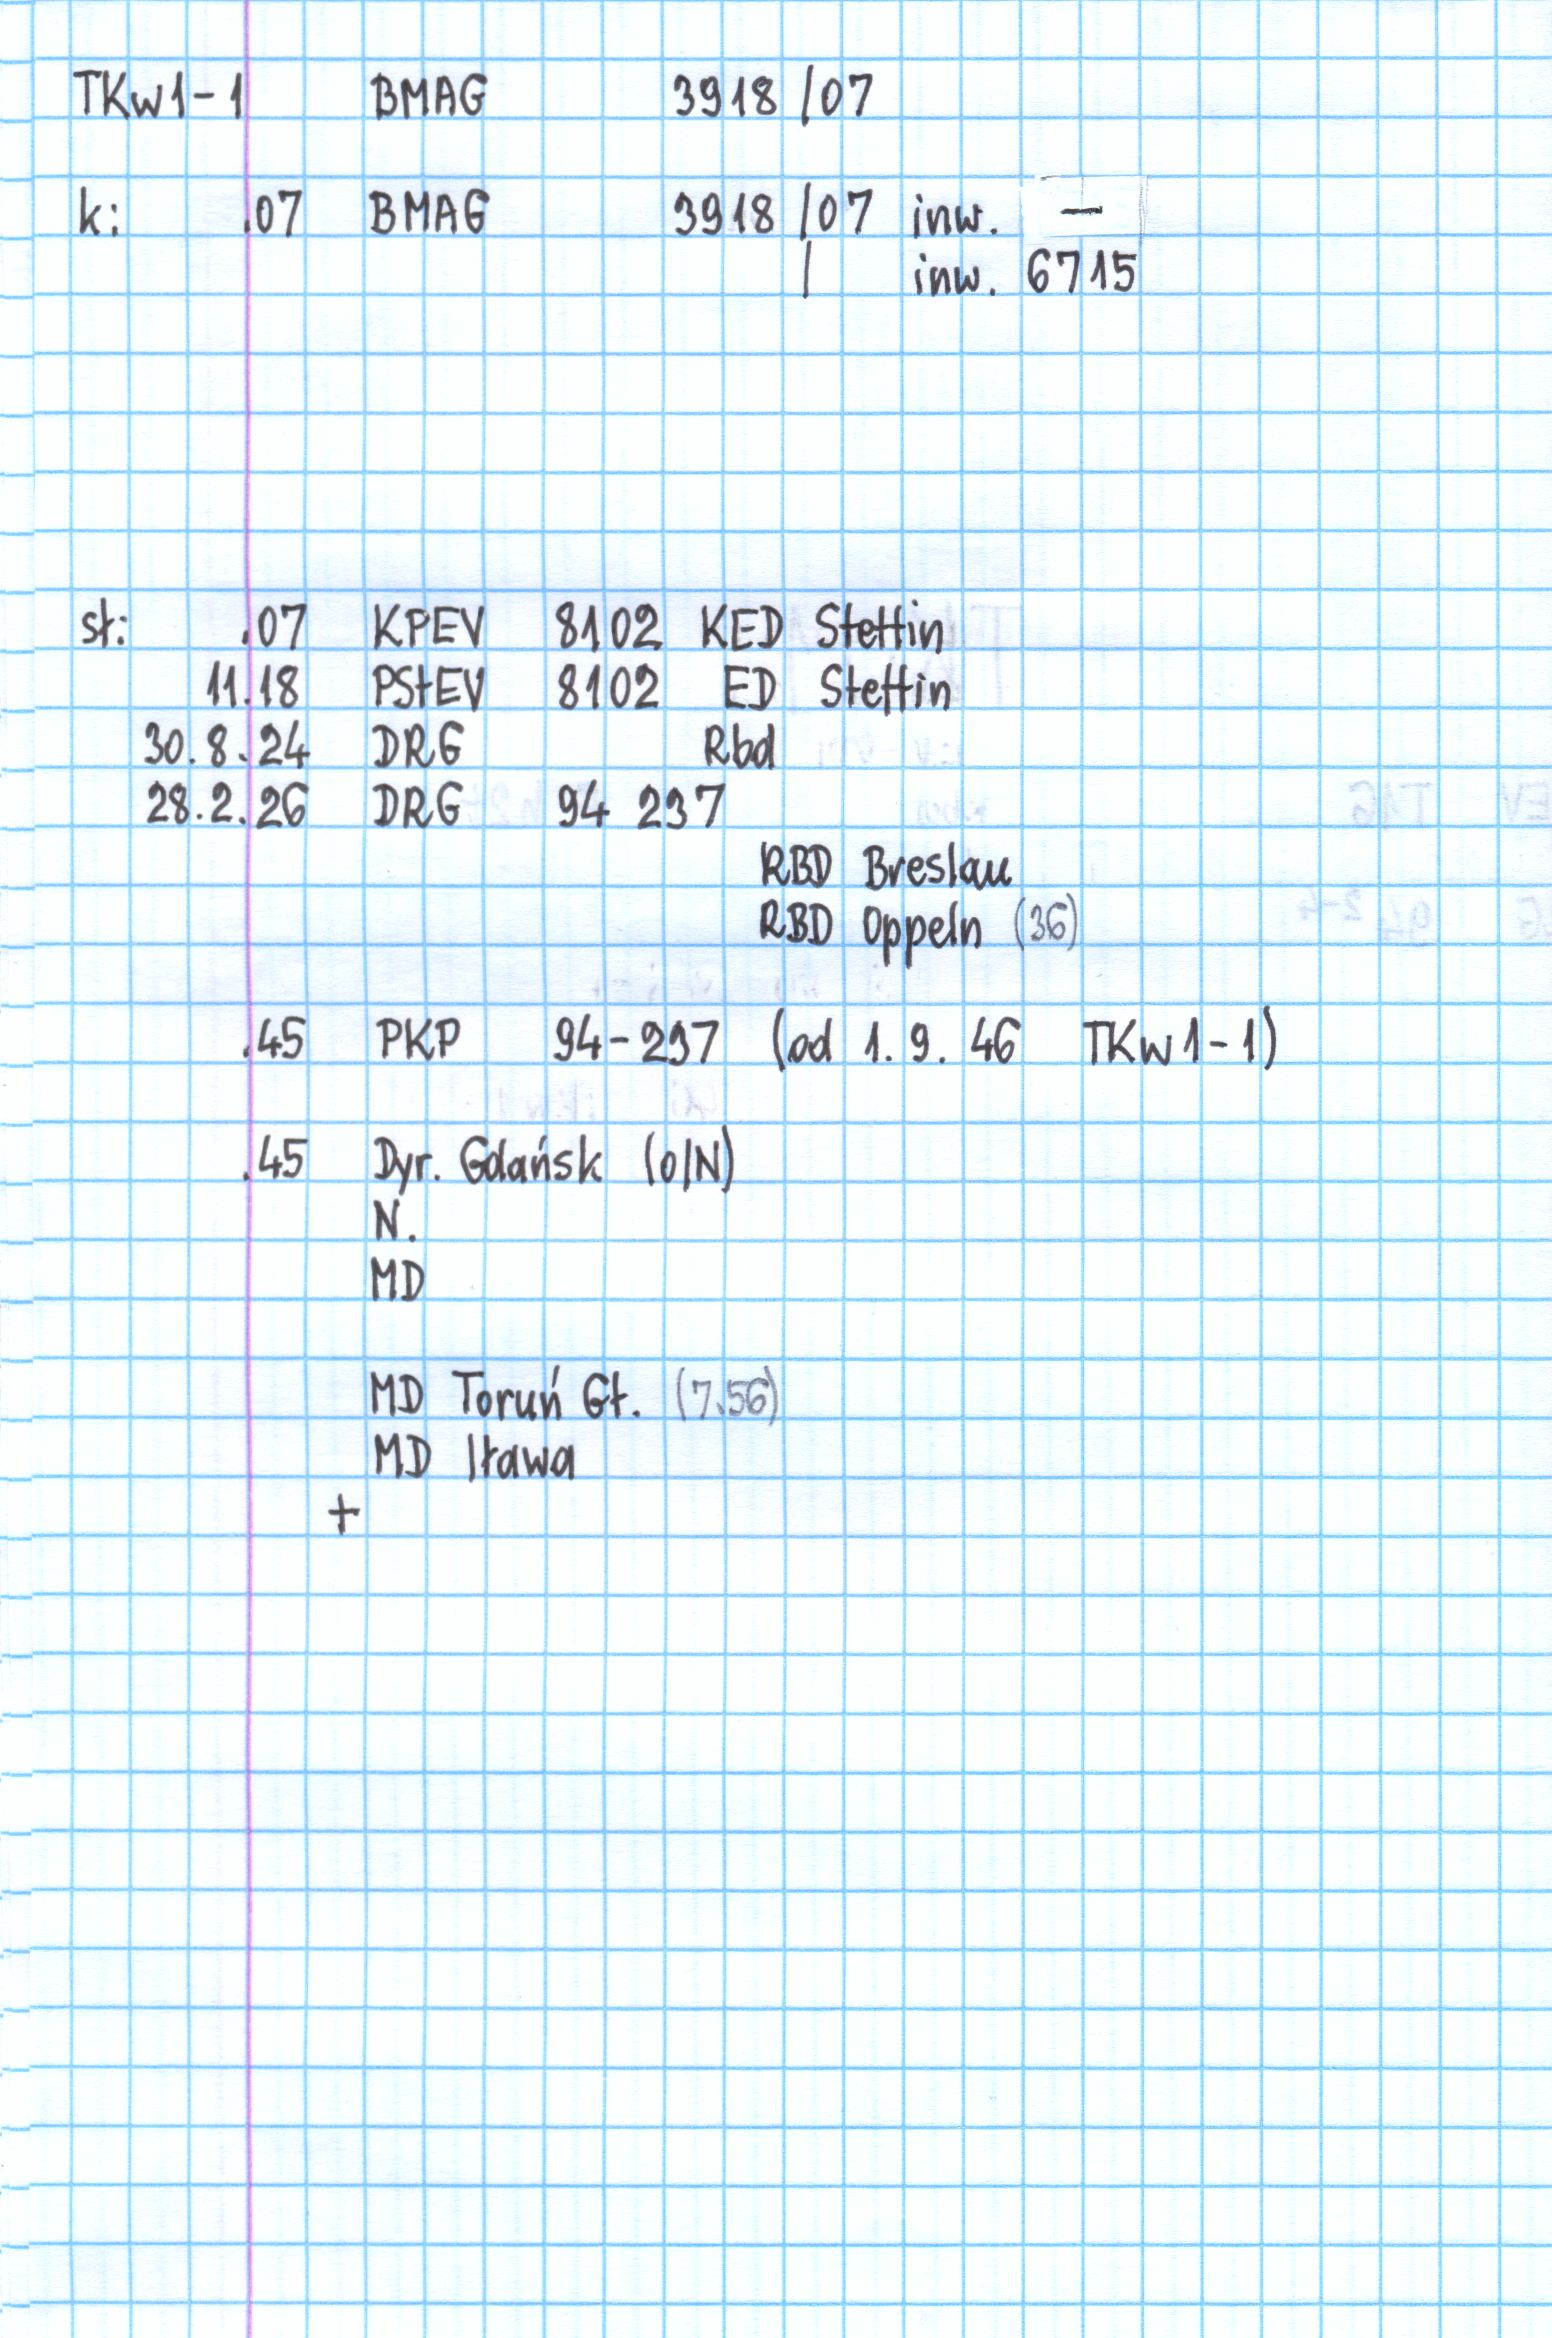 TKw1-1 BMAG 3918 /07
k: .07 BMAG 3918 /07 inw. —
/ inw. 6715
st: .07 KPEV 8102 KED Stettin
11.18 PStEV 8102 ED Stettin
30.8.24 DRG Rbd
28.2.26 DRG 94 237
RBD Breslau
RBD Oppeln (36)
.45 PKP 94-237 (od 1.9.46 TKw1-1)
.45 Dyr. Gdańsk (o/N)
N.
MD
MD Toruń Gł. (7.56)
MD Iława
+